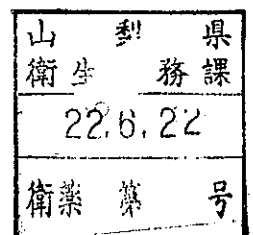 山梨県
衛生務課
22.6.22
衛薬第号